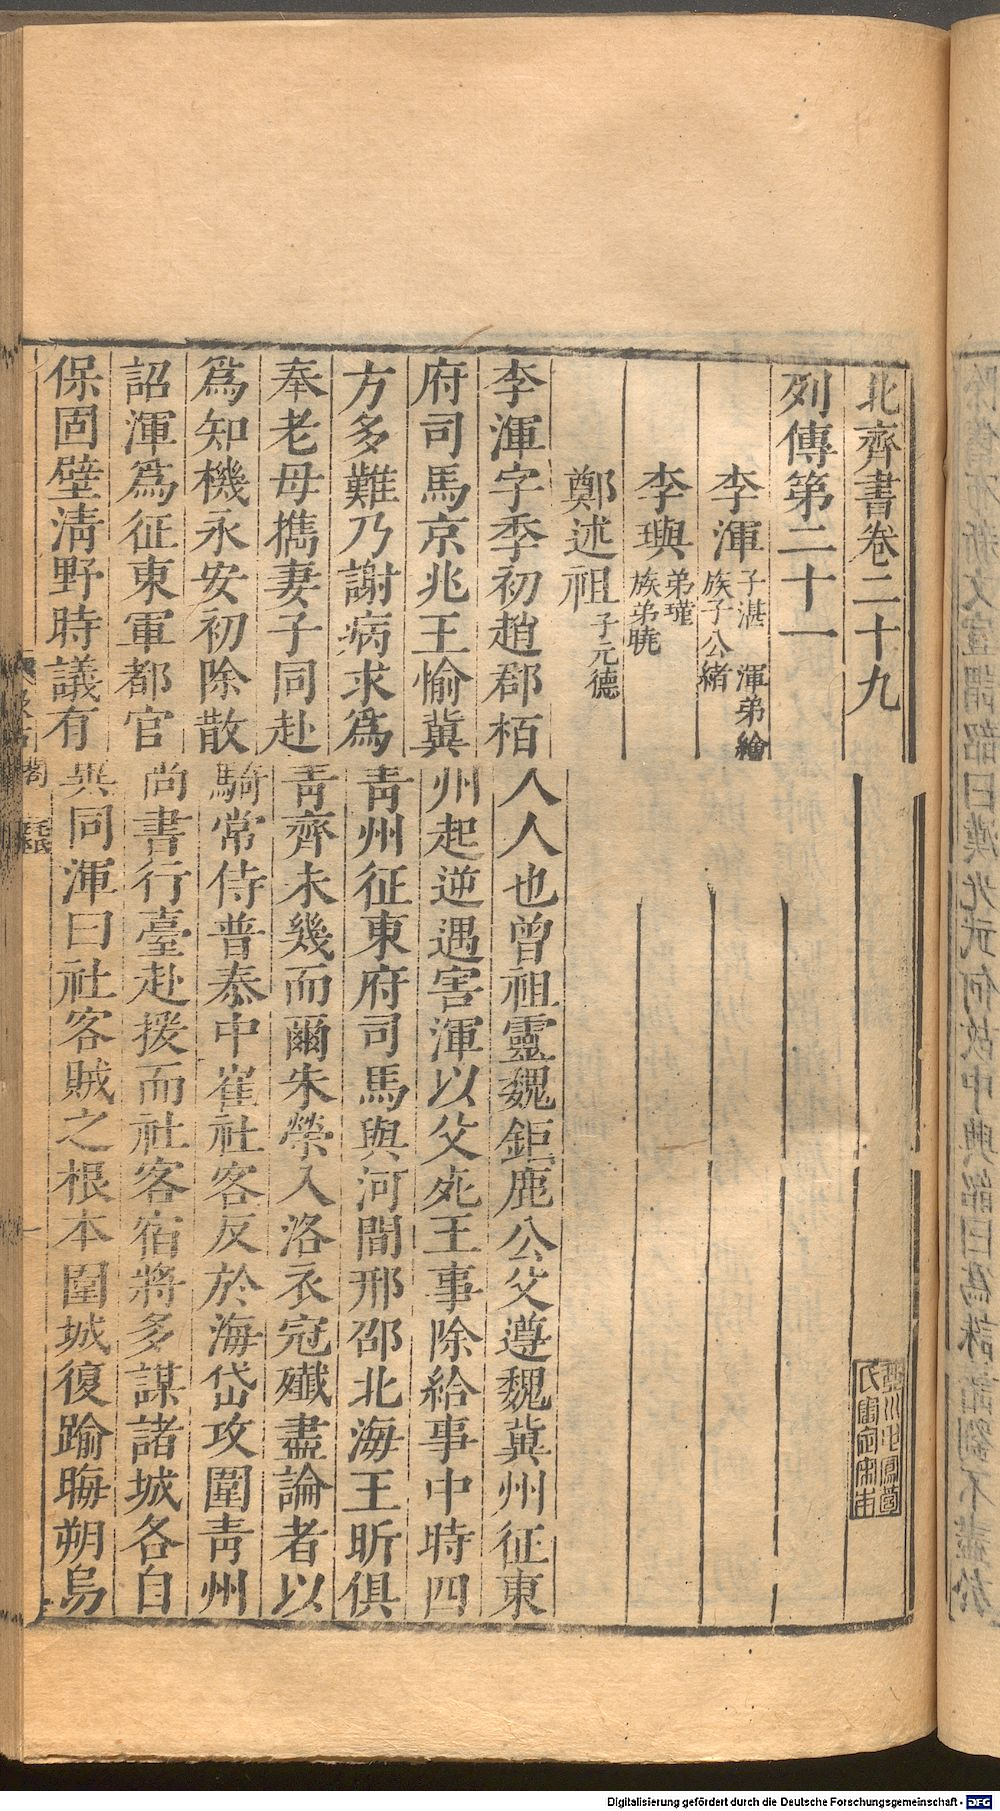 北齊書卷二十九
列傳第二十一
李渾 子湛 渾弟繪 族子公緒
李璵 弟瑾 族弟曉
鄭述祖 子元德
李渾字季初趙郡栢人人也曾祖靈魏鉅鹿公父遵魏冀州征東
府司馬京兆王愉冀州起逆遇害渾以父死王事除給事中時四
方多難乃謝病求爲青州征東府司馬與河間邢邵北海王昕俱
奉老母攜妻子同赴青齊未幾而爾朱榮入洛衣冠殲盡論者以
爲知機永安初除散騎常侍普泰中崔社客反於海岱攻圍青州
詔渾爲征東軍都官尚書行臺赴援而社客宿將多謀諸城各自
保固壁清野時議有異同渾曰社客賊之根本圍城復踰晦朔烏
Digitalisierung gefördert durch die Deutsche Forschungsgemeinschaft - DFG